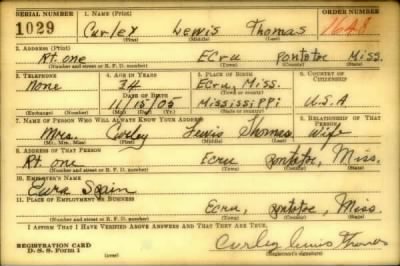 SERIAL NUMBER 1. NAME (Print) ORDER NUMBER
1029 Curley Lewis Thomas
(First) (Middle) (Last)
2. ADDRESS (Print)
Rt. one Ecru Pontotoc Miss.
(Number and street or R. F. D. number) (Town) (County) (State)
3. TELEPHONE 4. AGE IN YEARS 5. PLACE OF BIRTH 6. COUNTRY OF CITIZENSHIP
None 34 Ecru, Miss.
DATE OF BIRTH (Town or county)
11/15/05 Mississippi U.S.A
(Exchange) (Number) (Mo.) (Day) (Yr.) (State or country)
7. NAME OF PERSON WHO WILL ALWAYS KNOW YOUR ADDRESS 8. RELATIONSHIP OF THAT PERSON
Mrs. Curley Lewis Thomas Wife
(Mr., Mrs., Miss) (First) (Middle) (Last)
9. ADDRESS OF THAT PERSON
Rt. one Ecru Pontotoc, Miss.
(Number and street or R. F. D. number) (Town) (County) (State)
10. EMPLOYER'S NAME
Spain
11. PLACE OF EMPLOYMENT OR BUSINESS
Ecru, Pontotoc, Miss.
(Number and street or R. F. D. number) (Town) (County) (State)
I AFFIRM THAT I HAVE VERIFIED ABOVE ANSWERS AND THAT THEY ARE TRUE.
REGISTRATION CARD
D. S. S. Form 1 Curley Lewis Thomas
(Registrant's signature)